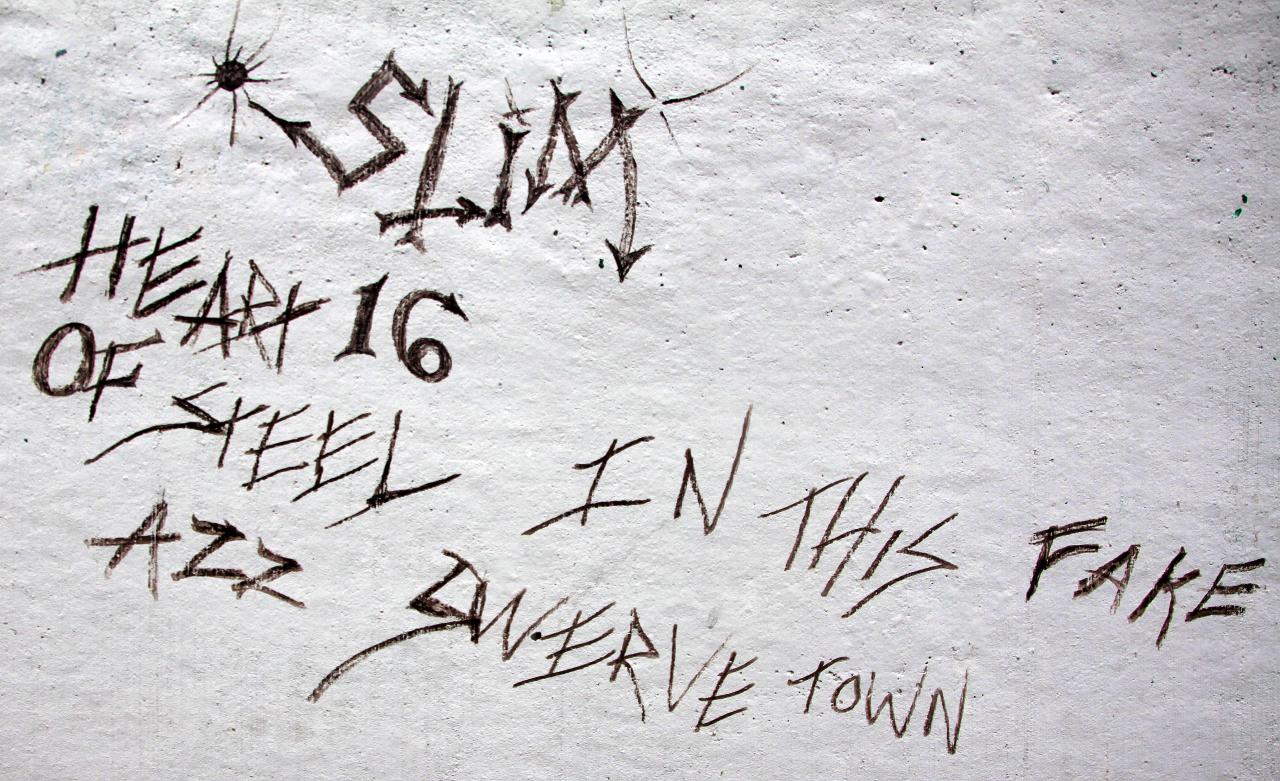 SLiM
HEART 16
OF
STEEL
IN THIS FAKE
AZZ SWERVE TOWN